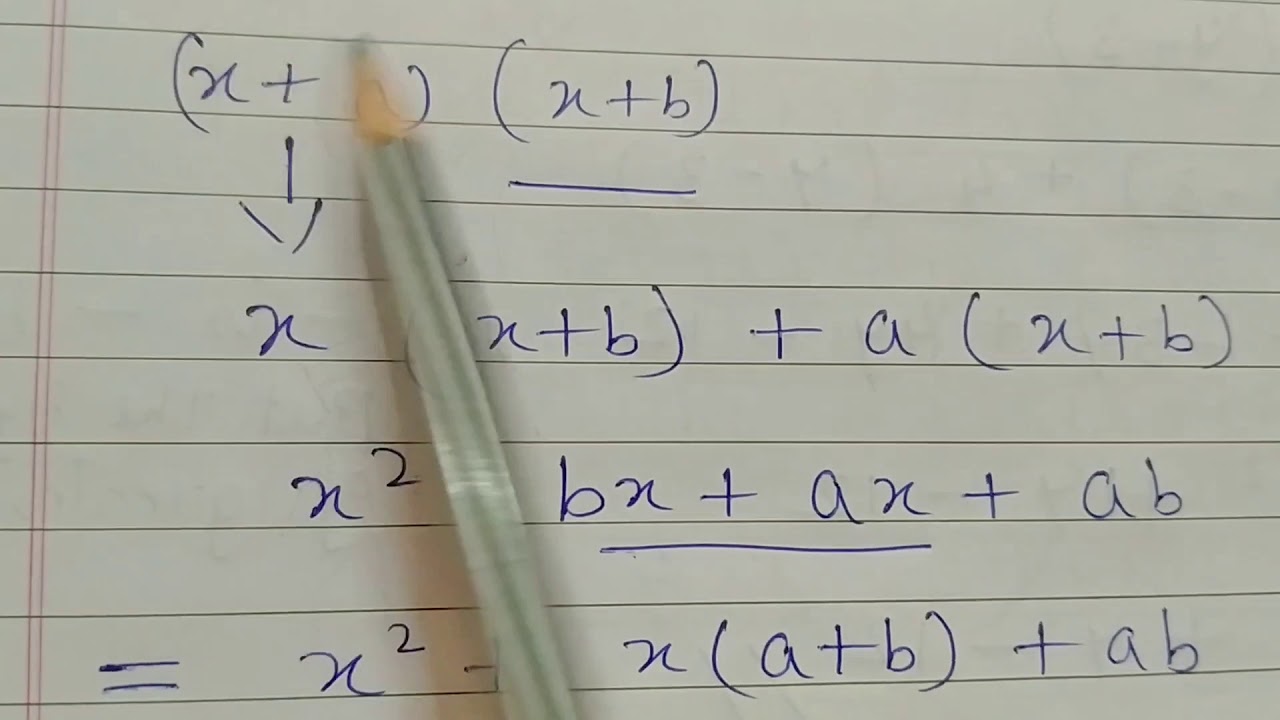 (x + ) (x+b)
x (x+b) + a (x+b)
x² bx + ax + ab
= x² x(a+b) + ab